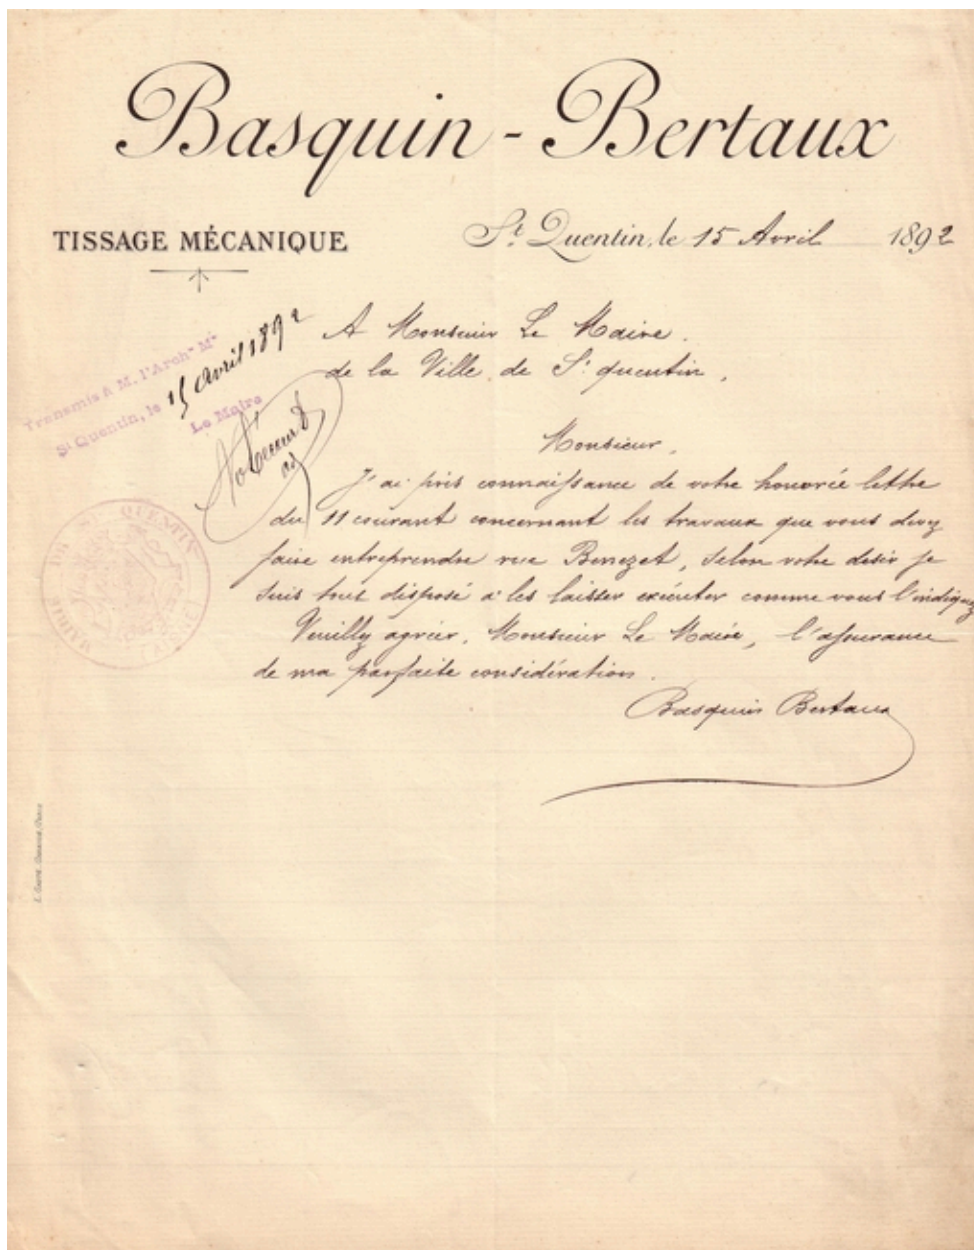 Basquin - Bertaux
TISSAGE MÉCANIQUE
St. Quentin, le 15 Avril 1892
Transmis à M. l'Archte Mal
St Quentin, le 15 Avril 1892
Le Maire
A Monsieur Le Maire.
de la Ville de St. quentin,
Monsieur,
J'ai pris connaissance de votre honorée lettre
du 11 courant concernant les travaux que vous devez
faire entreprendre rue Benezet, selon votre désir je
suis tout disposé à les laisser exécuter comme vous l'indiquez
Veuillez agréer, Monsieur Le Maire, l'assurance
de ma parfaite considération.
Basquin Bertaux
MAIRIE DE ST QUENTIN
(AISNE)